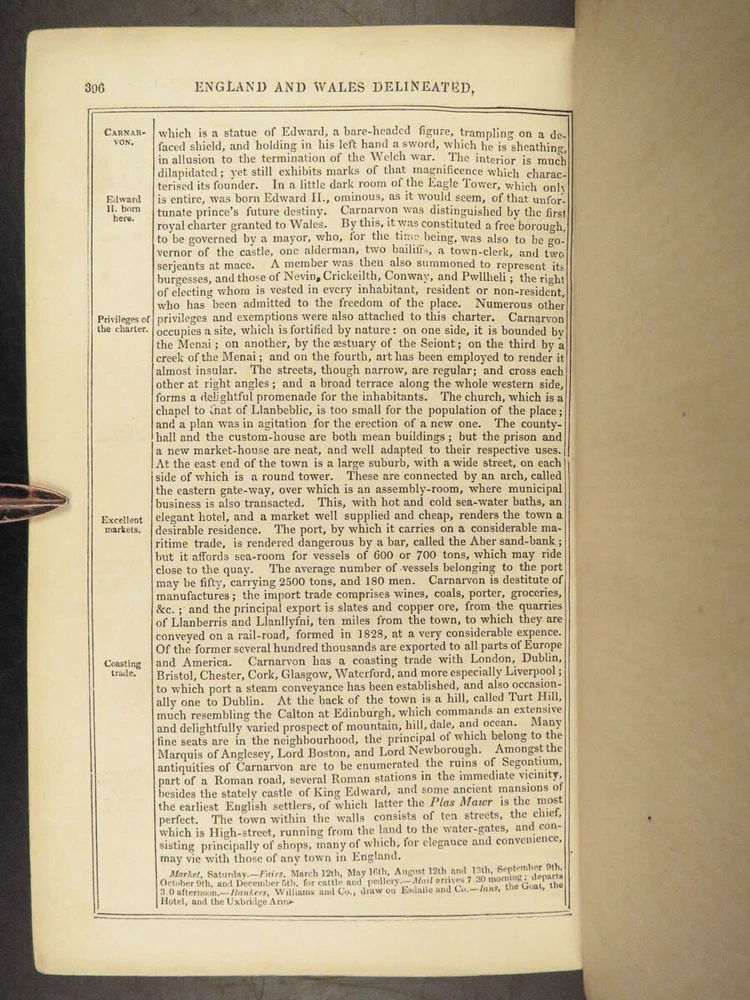 396 ENGLAND AND WALES DELINEATED,
CARNAR-
VON.
which is a statue of Edward, a bare-headed figure, trampling on a de-
faced shield, and holding in his left hand a sword, which he is sheathing,
in allusion to the termination of the Welch war. The interior is much
dilapidated; yet still exhibits marks of that magnificence which charac-
terised its founder. In a little dark room of the Eagle Tower, which only
Edward
II. born
here.
is entire, was born Edward II., ominous, as it would seem, of that unfor-
tunate prince's future destiny. Carnarvon was distinguished by the first
royal charter granted to Wales. By this, it was constituted a free borough,
to be governed by a mayor, who, for the time being, was also to be go-
vernor of the castle, one alderman, two bailiffs, a town-clerk, and two
serjeants at mace. A member was then also summoned to represent its
burgesses, and those of Nevin, Crickeilth, Conway, and Pwllheli; the right
of electing whom is vested in every inhabitant, resident or non-resident,
who has been admitted to the freedom of the place. Numerous other
Privileges of
the charter.
privileges and exemptions were also attached to this charter. Carnarvon
occupies a site, which is fortified by nature: on one side, it is bounded by
the Menai; on another, by the æstuary of the Seiont; on the third by a
creek of the Menai; and on the fourth, art has been employed to render it
almost insular. The streets, though narrow, are regular; and cross each
other at right angles; and a broad terrace along the whole western side,
forms a delightful promenade for the inhabitants. The church, which is a
chapel to that of Llanbeblic, is too small for the population of the place;
and a plan was in agitation for the erection of a new one. The county-
hall and the custom-house are both mean buildings; but the prison and
a new market-house are neat, and well adapted to their respective uses.
At the east end of the town is a large suburb, with a wide street, on each
side of which is a round tower. These are connected by an arch, called
the eastern gate-way, over which is an assembly-room, where municipal
business is also transacted. This, with hot and cold sea-water baths, an
Excellent
markets.
elegant hotel, and a market well supplied and cheap, renders the town a
desirable residence. The port, by which it carries on a considerable ma-
ritime trade, is rendered dangerous by a bar, called the Aber sand-bank;
but it affords sea-room for vessels of 600 or 700 tons, which may ride
close to the quay. The average number of vessels belonging to the port
may be fifty, carrying 2500 tons, and 180 men. Carnarvon is destitute of
manufactures; the import trade comprises wines, coals, porter, groceries,
&c.; and the principal export is slates and copper ore, from the quarries
of Llanberris and Llanllyfni, ten miles from the town, to which they are
conveyed on a rail-road, formed in 1828, at a very considerable expence.
Of the former several hundred thousands are exported to all parts of Europe
Coasting
trade.
and America. Carnarvon has a coasting trade with London, Dublin,
Bristol, Chester, Cork, Glasgow, Waterford, and more especially Liverpool;
to which port a steam conveyance has been established, and also occasion-
ally one to Dublin. At the back of the town is a hill, called Turt Hill,
much resembling the Calton at Edinburgh, which commands an extensive
and delightfully varied prospect of mountain, hill, dale, and ocean. Many
fine seats are in the neighbourhood, the principal of which belong to the
Marquis of Anglesey, Lord Boston, and Lord Newborough. Amongst the
antiquities of Carnarvon are to be enumerated the ruins of Segontium,
part of a Roman road, several Roman stations in the immediate vicinity,
besides the stately castle of King Edward, and some ancient mansions of
the earliest English settlers, of which latter the Plas Mawr is the most
perfect. The town within the walls consists of ten streets, the chief,
which is High-street, running from the land to the water-gates, and con-
sisting principally of shops, many of which, for elegance and convenience,
may vie with those of any town in England.
Market, Saturday.—Fairs, March 12th, May 16th, August 12th and 13th, September 9th,
October 9th, and December 5th, for cattle and pedlery.—Mail arrives 7 30 morning; departs
3 0 afternoon.—Bankers, Williams and Co., draw on Esdaile and Co.—Inns, the Goat, the
Hotel, and the Uxbridge Arms.